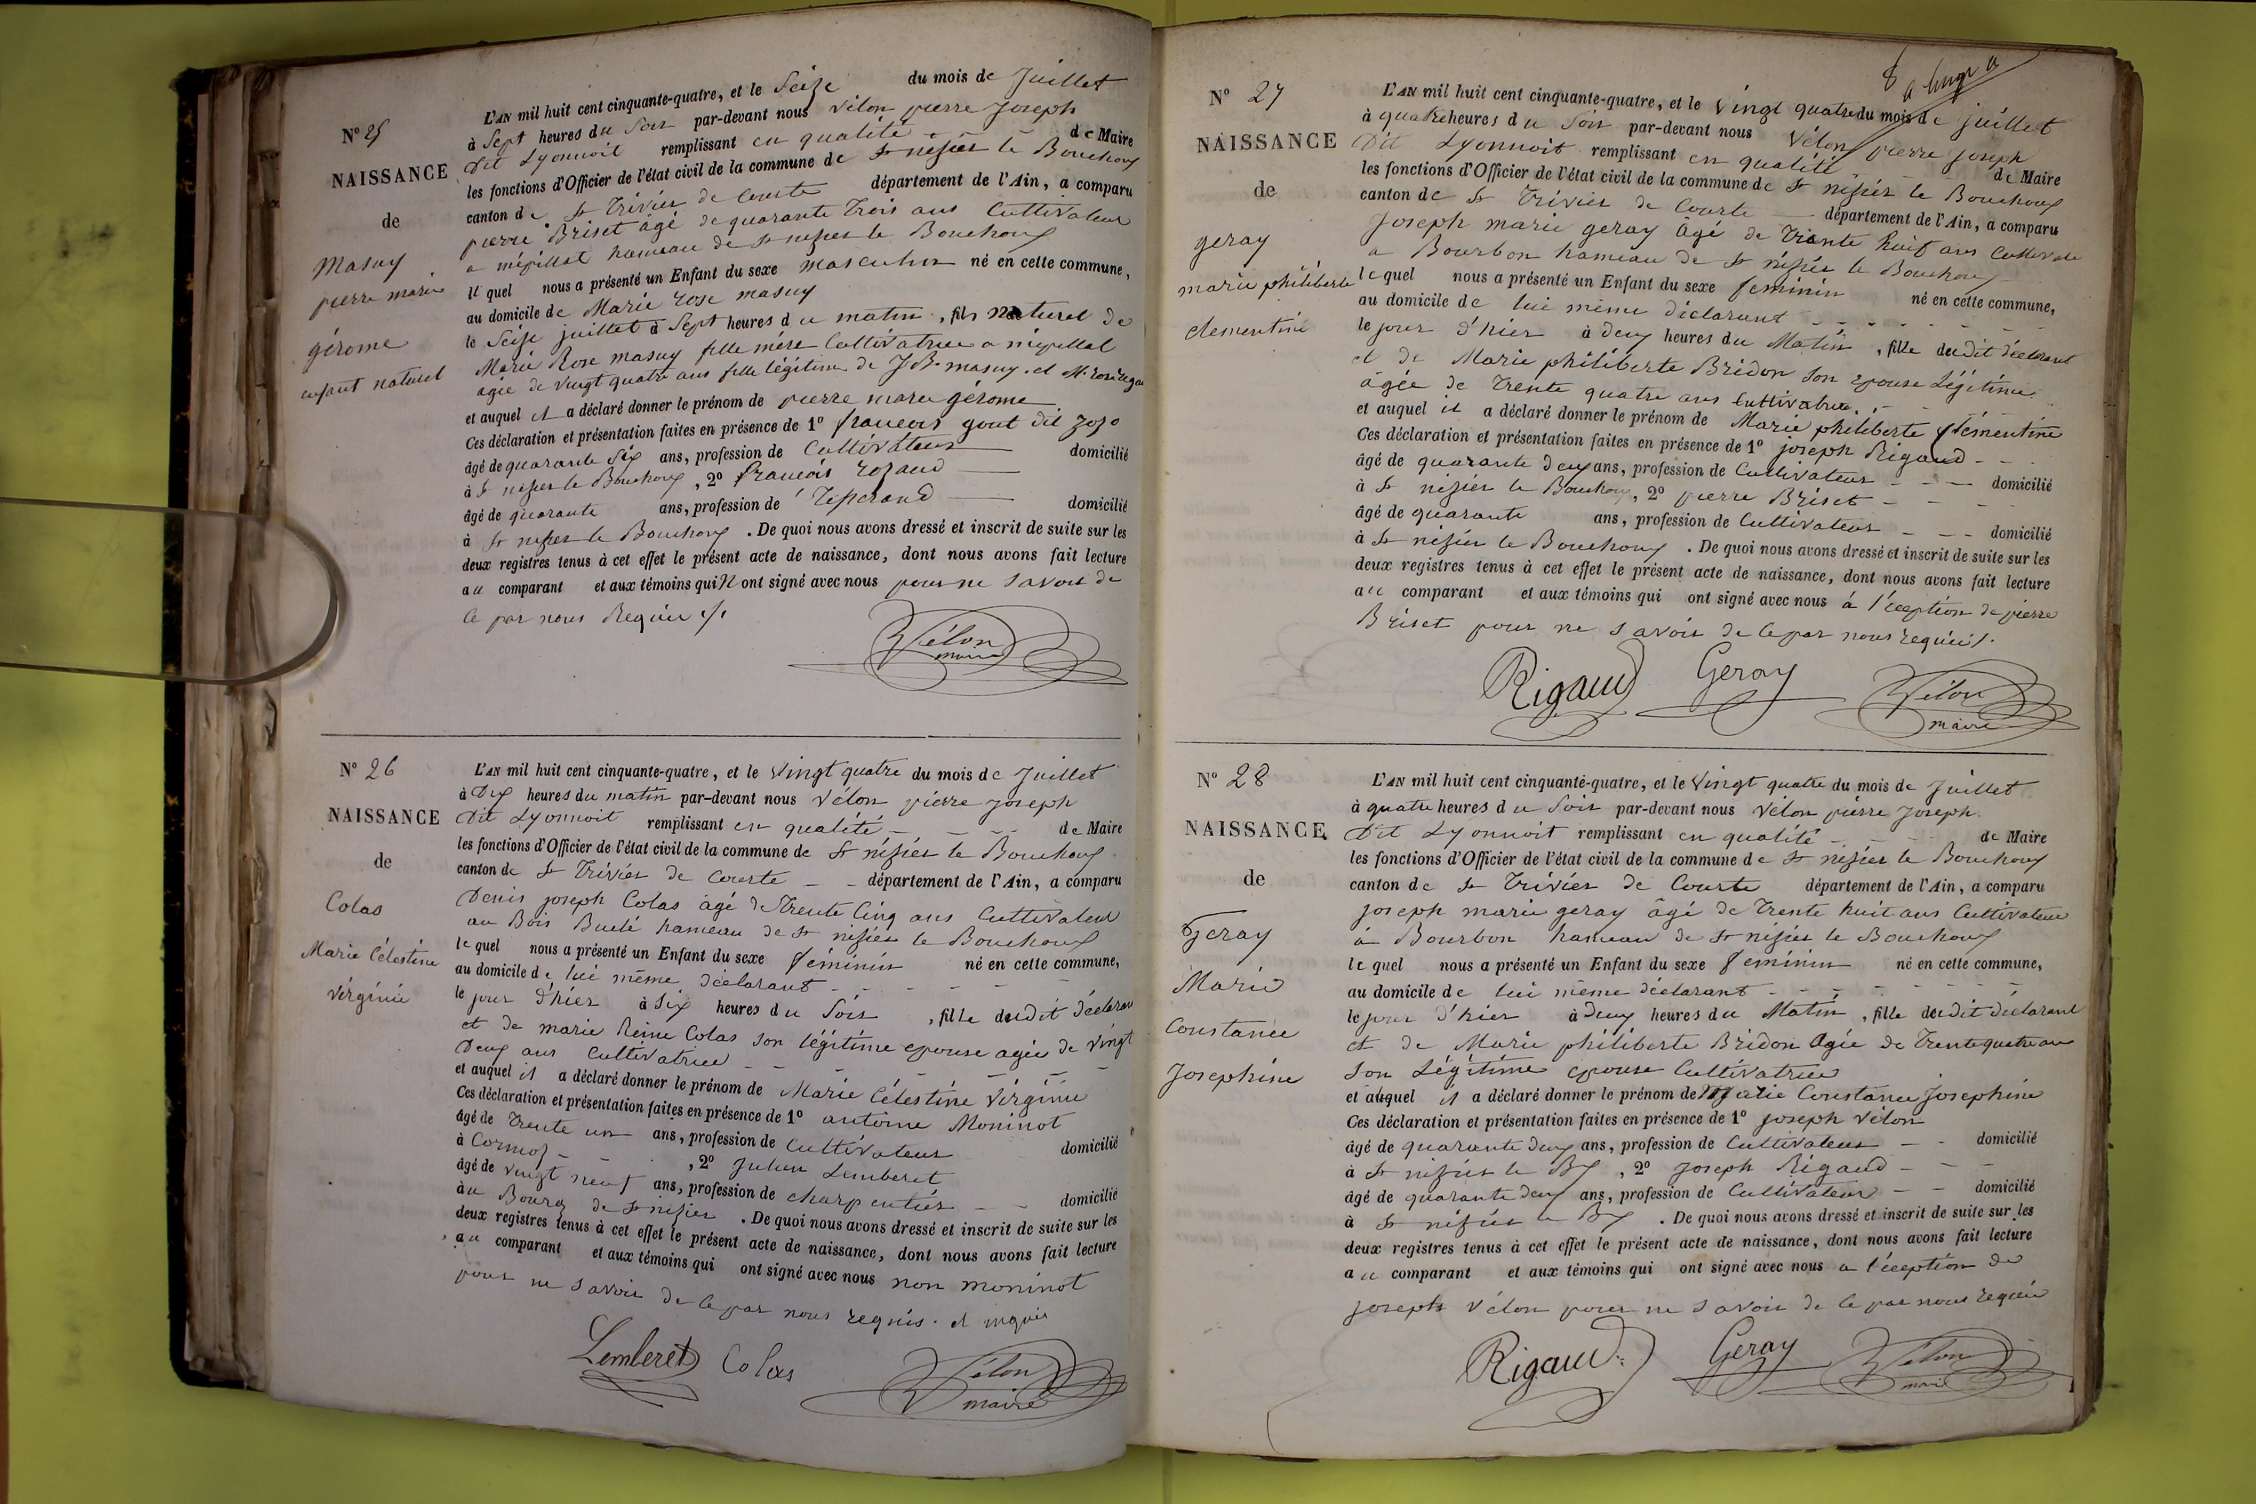 N° 25
NAISSANCE
de
Masuy
pierre marie
gérome
enfant naturel
L'AN mil huit cent cinquante-quatre, et le Seize du mois de Juillet
à Sept heures du Soir par-devant nous Vélon pierre Joseph
dit Lyonnoit remplissant en qualité de Maire
les fonctions d'Officier de l'état civil de la commune de St nisier le Bouchoux
canton de St Trivier de Courte département de l'Ain, a comparu
pierre Briset âgé de quarante Trois ans Cultivateur
a mépillat hameau de St nisier le Bouchoux
le quel nous a présenté un Enfant du sexe masculin né en cette commune,
au domicile de Marie rose masuy
le Seize juillet à Sept heures du matin, fils naturel de
Marie Rose masuy fille mère Cultivatrice a mépillat
agée de vingt quatre ans fille légitime de J B. masuy. et
et auquel il a déclaré donner le prénom de pierre marie gérome
Ces déclaration et présentation faites en présence de 1° francois gout dit zozo
âgé de quarante Six ans, profession de Cultivateur domicilié
à St nisier le Bouchoux, 2° francois rozand
âgé de quarante ans, profession de Tisserand domicilié
à St nisier le Bouchoux. De quoi nous avons dressé et inscrit de suite sur les
deux registres tenus à cet effet le présent acte de naissance, dont nous avons fait lecture
au comparant et aux témoins qui N ont signé avec nous pour ne savoir de
ce par nous Requis ./.
Vélon
maire
N° 26
NAISSANCE
de
Colas
Marie Célestine
Virginie
L'AN mil huit cent cinquante-quatre, et le Vingt quatre du mois de Juillet
à Dix heures du matin par-devant nous Vélon pierre Joseph
Dit Lyonnoit remplissant en qualité de Maire
les fonctions d'Officier de l'état civil de la commune de St nisier le Bouchoux
canton de St Trivier de Courte département de l'Ain, a comparu
Denis joseph Colas âgé de Trente Cinq ans Cultivateur
au Bois Buclé hameau de St nisier le Bouchoux
le quel nous a présenté un Enfant du sexe féminin né en cette commune,
au domicile de lui même déclarant
le jour d'hier à Six heures du Soir, fille dudit déclarant
et de marie Reine Colas son légitime epouse agée de vingt
Deux ans Cultivatrice
et auquel il a déclaré donner le prénom de Marie Célestine Virginie
Ces déclaration et présentation faites en présence de 1° antoine Moninot
âgé de Trente un ans, profession de Cultivateur domicilié
à Cormoz, 2° Julien Lemberet
âgé de vingt neuf ans, profession de charpentier domicilié
àu Bourg de St nisier. De quoi nous avons dressé et inscrit de suite sur les
deux registres tenus à cet effet le présent acte de naissance, dont nous avons fait lecture
au comparant et aux témoins qui ont signé avec nous non moninot
pour ne savoir de ce par nous requis. et
Lemberet Colas Vélon
maire
N° 27
NAISSANCE
de
geray
marie philiberte
clementine
L'AN mil huit cent cinquante-quatre, et le vingt quatre du mois de juillet
à quatre heures du Soir par-devant nous Vélon pierre joseph
Dit Lyonnoit remplissant en qualité de Maire
les fonctions d'Officier de l'état civil de la commune de St nisier le Bouchoux
canton de St Trivier de Courte département de l'Ain, a comparu
Joseph marie geray âgé de Trente huit ans Cultivate
a Bourbon hameau de St nisier le Bouchoux
le quel nous a présenté un Enfant du sexe feminin né en cette commune,
au domicile de lui même déclarant
le jour d'hier à deux heures du Matin, fille dudit déclarant
et de Marie philiberte Bridon Son epouse Légitime
âgée de Trente quatre ans cultivatrice
et auquel il a déclaré donner le prénom de Marie philiberte clémentine
Ces déclaration et présentation faites en présence de 1° joseph Rigaud
âgé de quarante deux ans, profession de Cultivateur domicilié
à St nisier le Bouchoux, 2° pierre Briset
âgé de quarante ans, profession de Cultivateur domicilié
à St nisier le Bouchoux. De quoi nous avons dressé et inscrit de suite sur les
deux registres tenus à cet effet le présent acte de naissance, dont nous avons fait lecture
au comparant et aux témoins qui ont signé avec nous á l'éception de pierre
Briset pour ne savoir de ce par nous requis.
Rigaud Geray Vélon
maire
N° 28
NAISSANCE
de
Geray
Marie
Constance
Josephine
L'AN mil huit cent cinquante-quatre, et le Vingt quatre du mois de Juillet
à quatre heures du Soir par-devant nous Vélon pierre Joseph
Dit Lyonnoit remplissant en qualité de Maire
les fonctions d'Officier de l'état civil de la commune de St nisier le Bouchoux
canton de St Trivier de Courte département de l'Ain, a comparu
joseph marie geray âgé de Trente huit ans Cultivateur
à Bourbon hameau de St nisier le Bouchoux
le quel nous a présenté un Enfant du sexe feminin né en cette commune,
au domicile de lui même déclarant
le jour d'hier à deux heures du Matin, fille dudit déclarant
et de Marie philiberte Bridon Agée de Trente quatre ans
Son Légitime epouse Cultivatrice
et auquel il a déclaré donner le prénom de Marie Constance Josephine
Ces déclaration et présentation faites en présence de 1° Joseph Vélon
âgé de quarante deux ans, profession de Cultivateur domicilié
à St nisier le Bx, 2° Joseph Rigaud
âgé de quarante deux ans, profession de Cultivateur domicilié
à St nisier le Bx. De quoi nous avons dressé et inscrit de suite sur les
deux registres tenus à cet effet le présent acte de naissance, dont nous avons fait lecture
au comparant et aux témoins qui ont signé avec nous a l'éception de
joseph Vélon pour ne savoir de ce par nous requis
Rigaud Geray Vélon
maire